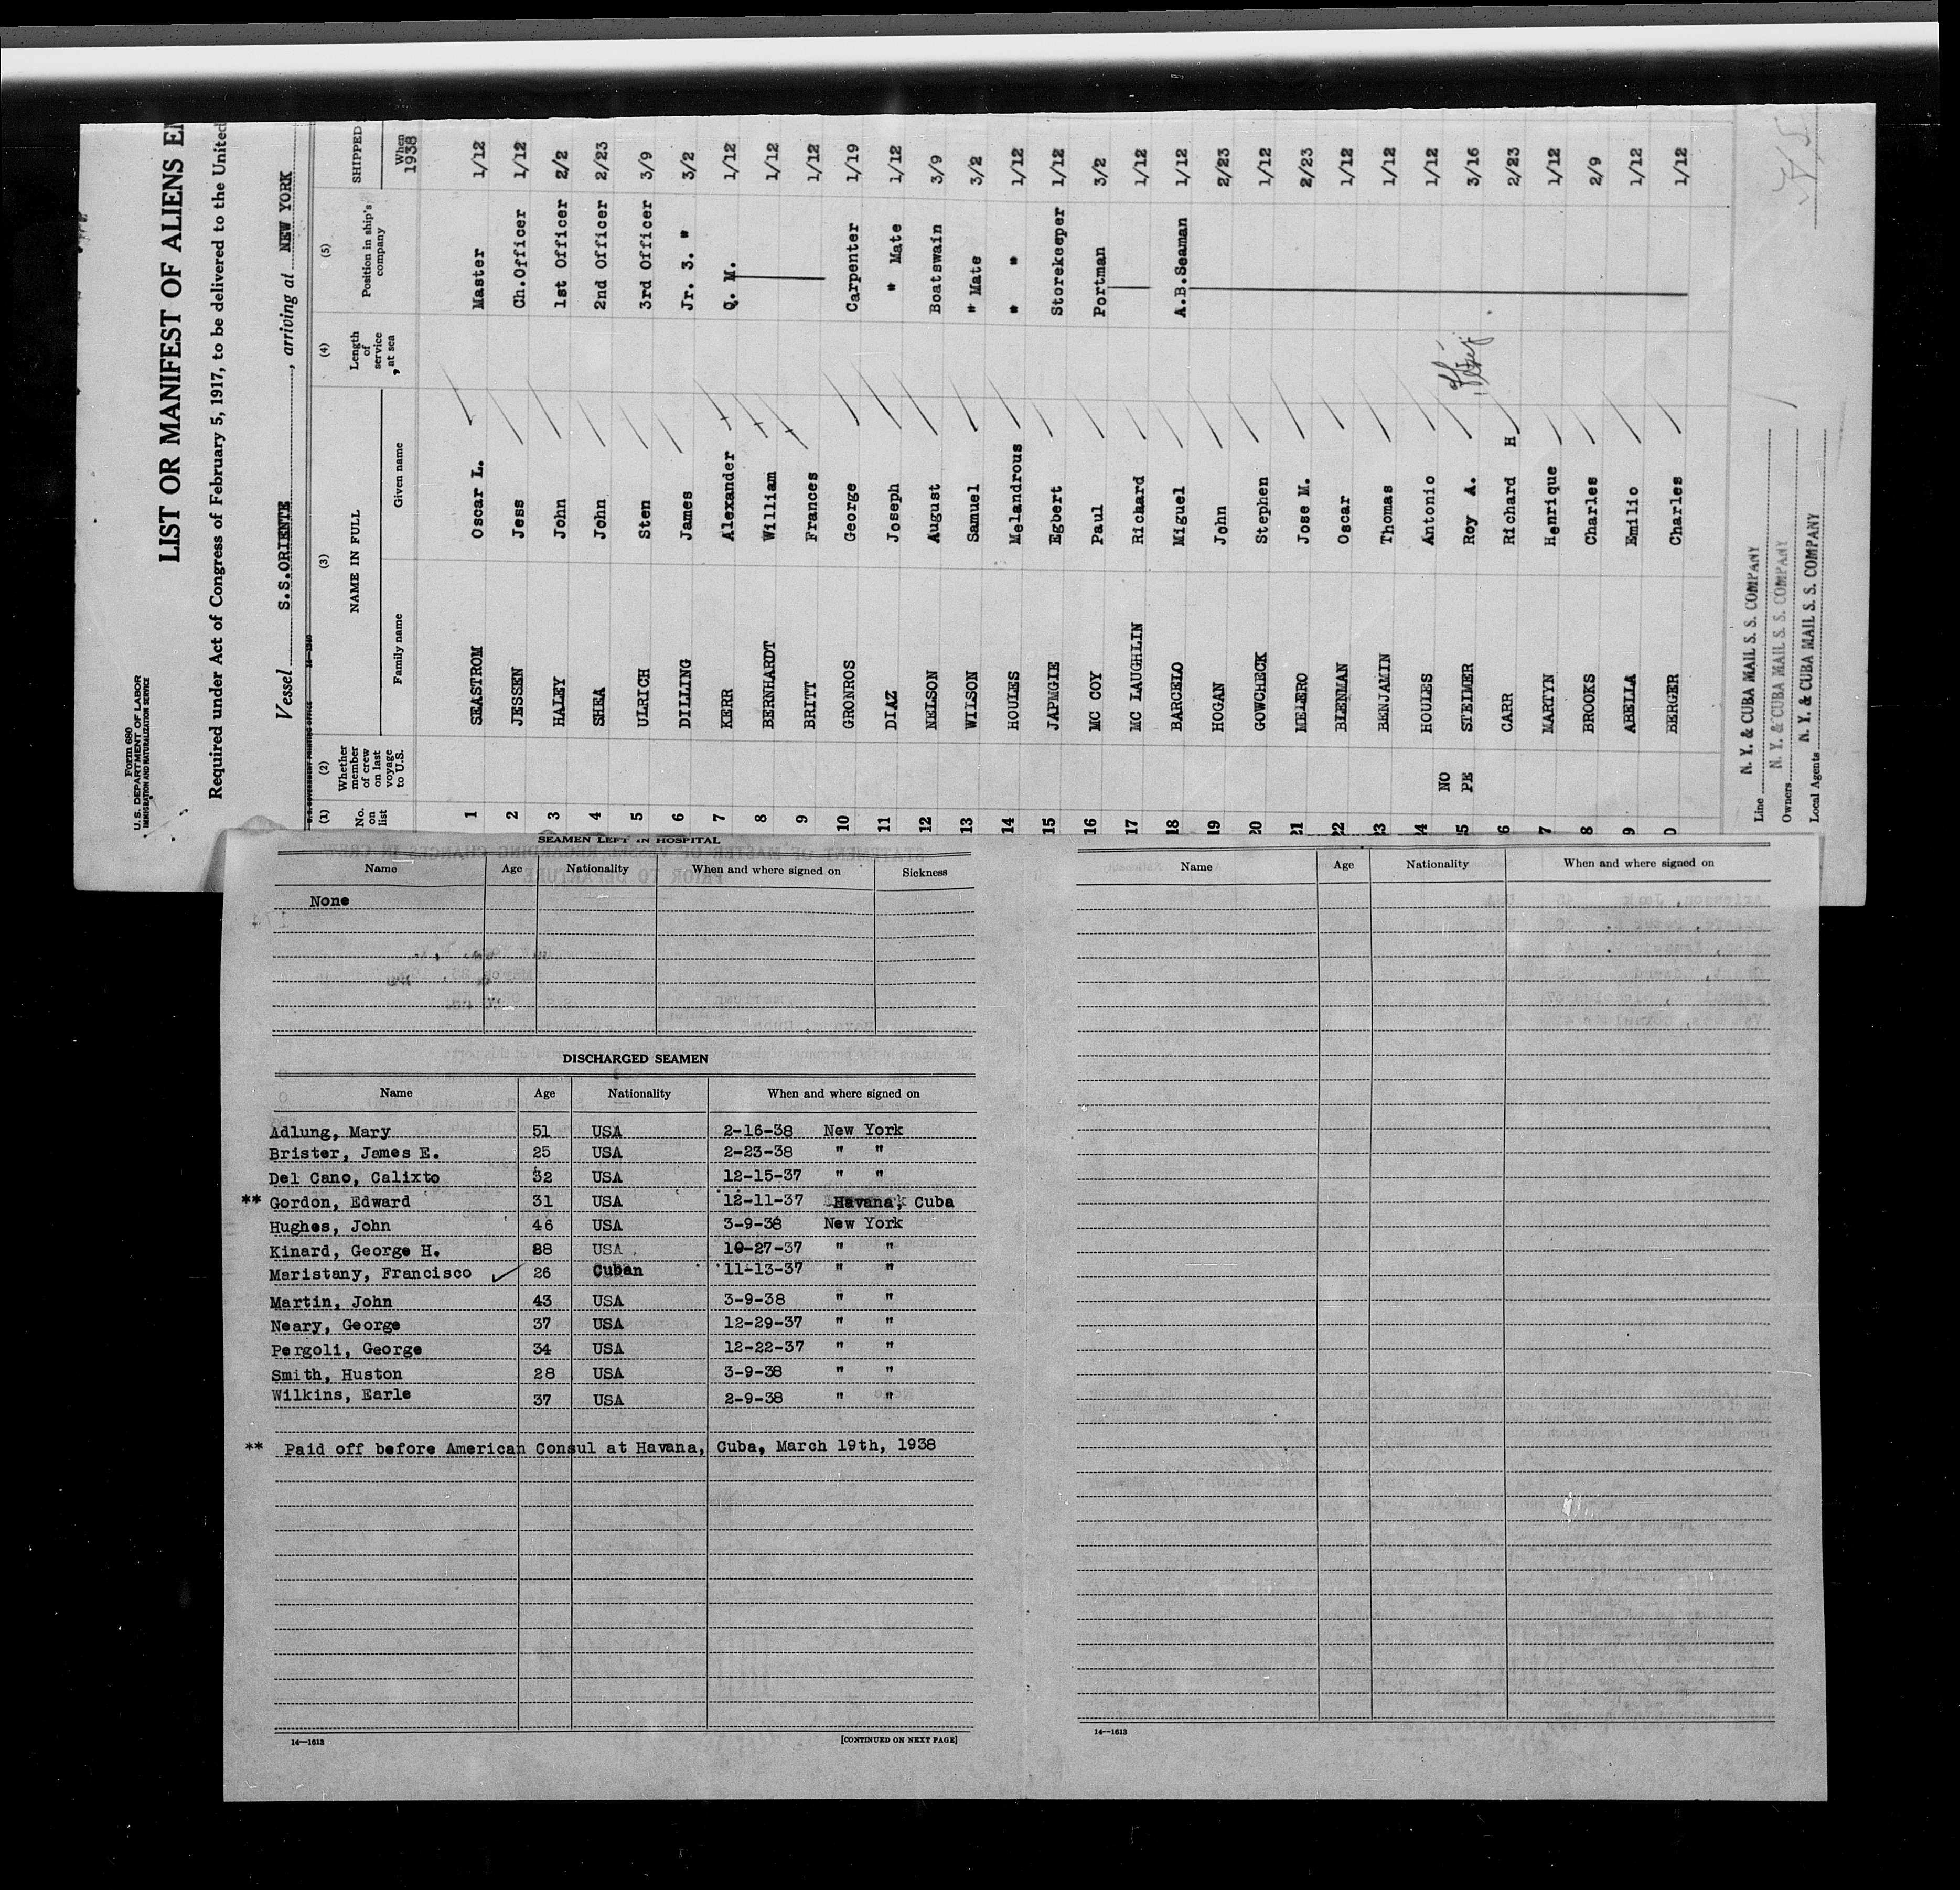 Form 680
U. S. DEPARTMENT OF LABOR
IMMIGRATION AND NATURALIZATION SERVICE
LIST OR MANIFEST OF ALIENS
Required under Act of Congress of February 5, 1917, to be delivered to the United
Vessel S.S.ORIENTE, arriving at NEW YORK
(1) (2) (3) (4) (5)
No. on list Whether member of crew on last voyage to U.S. NAME IN FULL Length of service at sea Position in ship's company SHIPPED
Family name Given name When 1938
1 SEASTROM Oscar L. Master 1/12
2 JESSEN Jess Ch.Officer 1/12
3 HALEY John 1st Officer 2/2
4 SHEA John 2nd Officer 2/23
5 ULRICH Sten 3rd Officer 3/9
6 DILLING James Jr. 3. " 3/2
7 KERR Alexander Q. M. 1/12
8 BERNHARDT William 1/12
9 BRITT Frances 1/12
10 GRONROS George Carpenter 1/19
11 DIAZ Joseph " Mate 1/12
12 NELSON August Boatswain 3/9
13 WILSON Samuel " Mate 3/2
14 HOULES Melandrous " " 1/12
15 JAPMGIE Egbert Storekeeper 1/12
16 MC COY Paul Portman 3/2
17 MC LAUGHLIN Richard 1/12
18 BARCELO Miguel A.B.Seaman 1/12
19 HOGAN John 2/23
20 GOWCHECK Stephen 1/12
21 MELERO Jose M. 2/23
22 BLENMAN Oscar 1/12
23 BENJAMIN Thomas 1/12
24 NO HOULES Antonio 1/12
5 PE STEIMER Roy A. 3/16
6 CARR Richard H 2/23
7 MARTYN Henrique 1/12
8 BROOKS Charles 2/9
9 ABELLA Emilio 1/12
0 BERGER Charles 1/12
Line N. Y. & CUBA MAIL S. S. COMPANY
Owners N. Y. & CUBA MAIL S. S. COMPANY
Local Agents N. Y. & CUBA MAIL S. S. COMPANY
SEAMEN LEFT IN HOSPITAL
Name Age Nationality When and where signed on Sickness
None
DISCHARGED SEAMEN
Name Age Nationality When and where signed on
Adlung, Mary 51 USA 2-16-38 New York
Brister, James E. 25 USA 2-23-38 " "
Del Cano, Calixto 32 USA 12-15-37 " "
** Gordon, Edward 31 USA 12-11-37 Havana, Cuba
Hughes, John 46 USA 3-9-38 New York
Kinard, George H. 28 USA 10-27-37 " "
Maristany, Francisco 26 Cuban 11-13-37 " "
Martin, John 43 USA 3-9-38 " "
Neary, George 37 USA 12-29-37 " "
Pergoli, George 34 USA 12-22-37 " "
Smith, Huston 28 USA 3-9-38 " "
Wilkins, Earle 37 USA 2-9-38 " "
** Paid off before American Consul at Havana, Cuba, March 19th, 1938
14—1613 [CONTINUED ON NEXT PAGE]
Name Age Nationality When and where signed on
14—1613